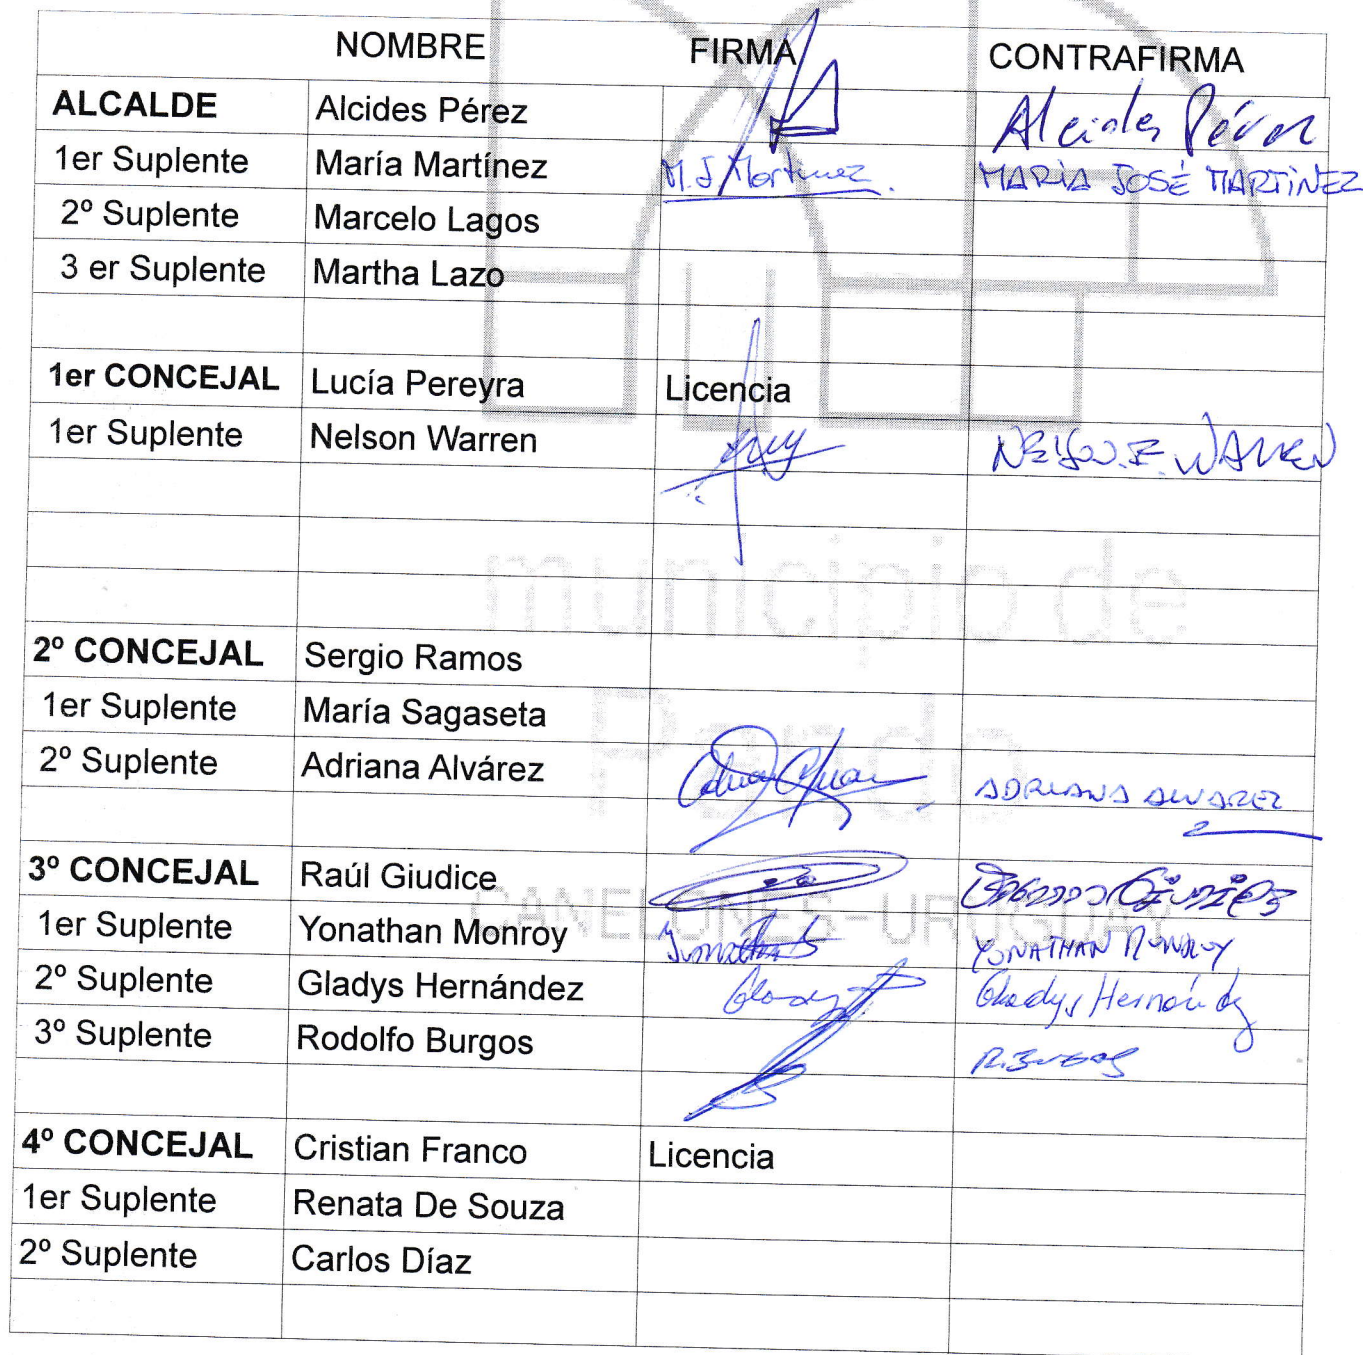 NOMBRE FIRMA CONTRAFIRMA
ALCALDE Alcides Pérez Alcides Pérez
1er Suplente María Martínez M.J Martinez. MARIA JOSÉ MARTINEZ
2º Suplente Marcelo Lagos
3 er Suplente Martha Lazo
1er CONCEJAL Lucía Pereyra Licencia
1er Suplente Nelson Warren NELSON.E. WARREN
municipio de
2º CONCEJAL Sergio Ramos
1er Suplente María Sagaseta
Pando
2º Suplente Adriana Alvárez ADRIANA ALVAREZ
3º CONCEJAL Raúl Giudice
CANELONES-URUGUAY
1er Suplente Yonathan Monroy YONATHAN MONROY
2º Suplente Gladys Hernández Gladys Gladys Hernández
3º Suplente Rodolfo Burgos R.Burgos
4º CONCEJAL Cristian Franco Licencia
1er Suplente Renata De Souza
2º Suplente Carlos Díaz